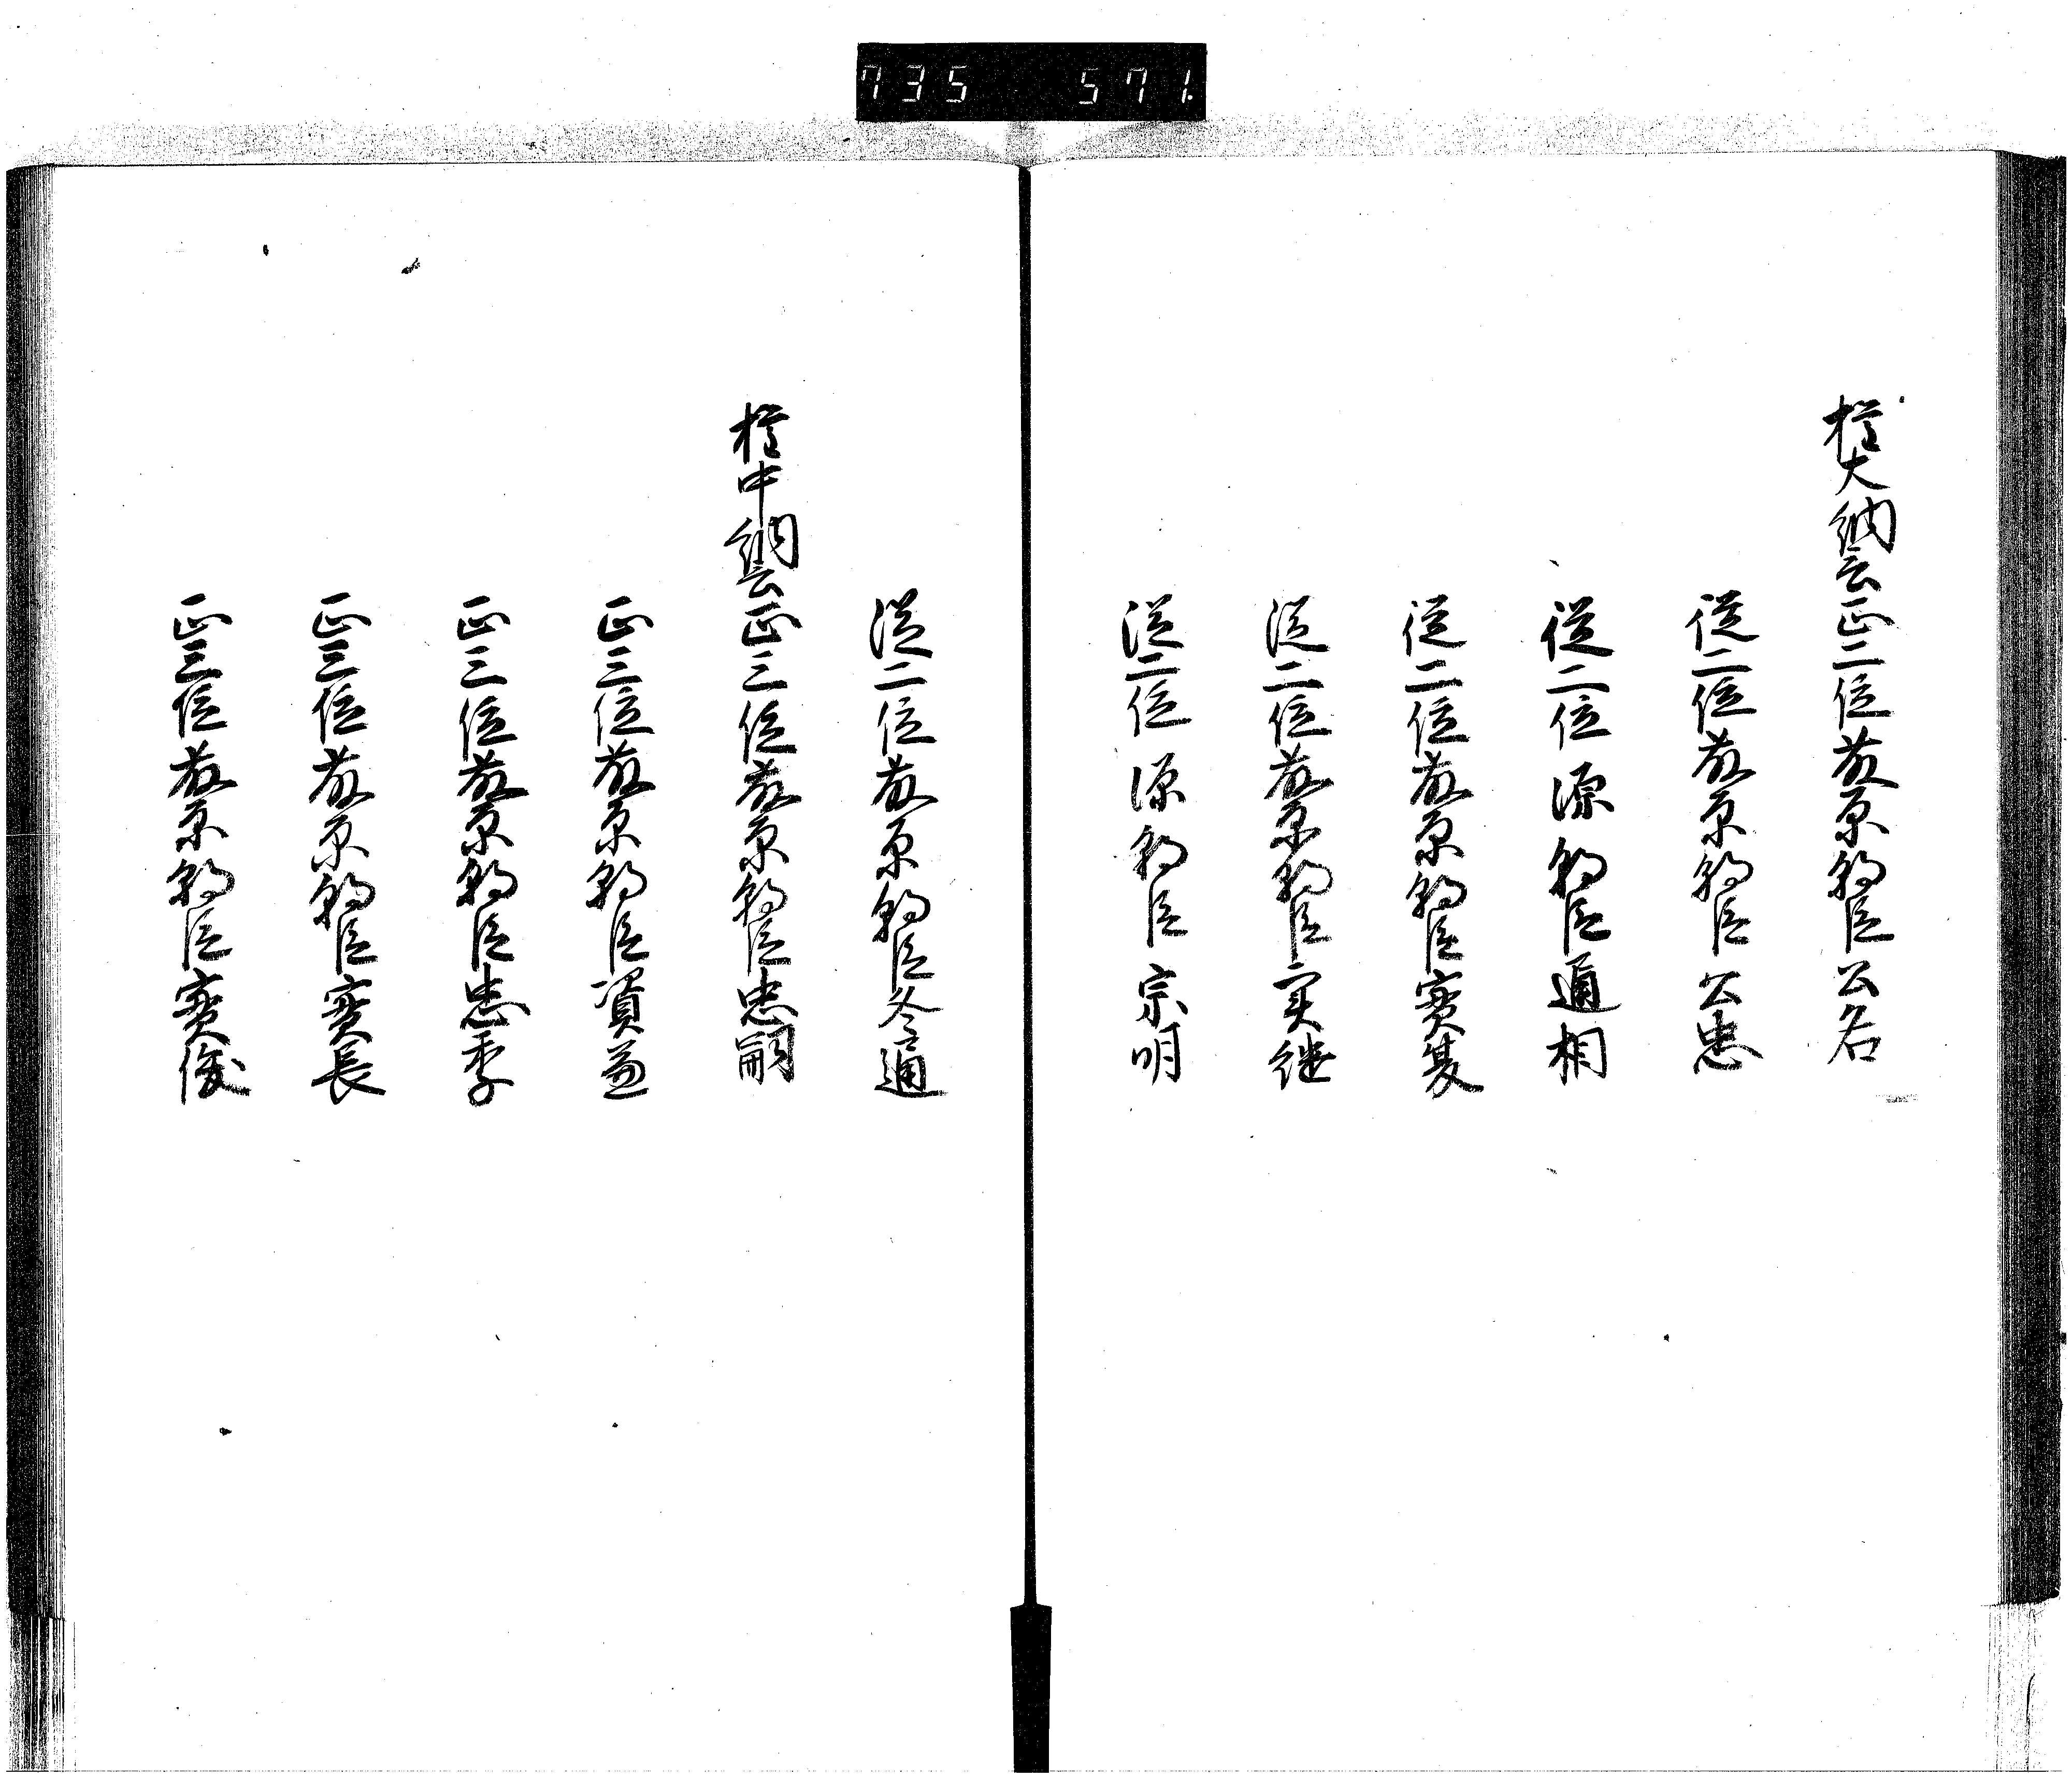 735 571
権大納言正二位藤原朝臣公名
従二位藤原朝臣公忠
従二位源朝臣通相
従二位藤原朝臣実夏
従二位藤原朝臣実継
従二位源朝臣宗明
従二位藤原朝臣冬通
権中納言正三位藤原朝臣忠嗣
正三位藤原朝臣資兼
正三位藤原朝臣忠季
正三位藤原朝臣実長
正三位藤原朝臣実俊